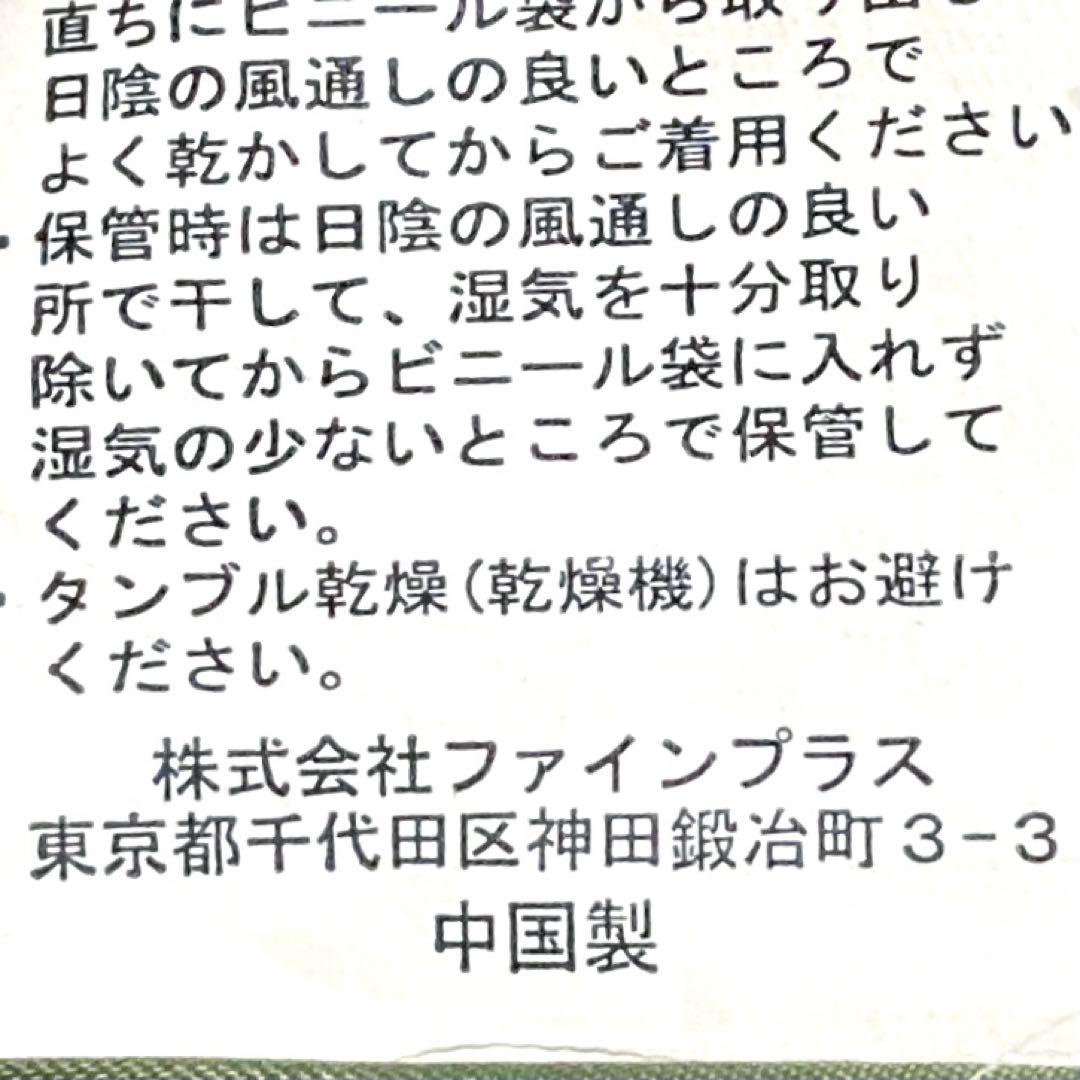 直ちにビニール袋から取り出し
日陰の風通しの良いところで
よく乾かしてからご着用ください
・保管時は日陰の風通しの良い
所で干して、湿気を十分取り
除いてからビニール袋に入れず
湿気の少ないところで保管して
ください。
・タンブル乾燥(乾燥機)はお避け
ください。
株式会社ファインプラス
東京都千代田区神田鍛冶町3-3
中国製